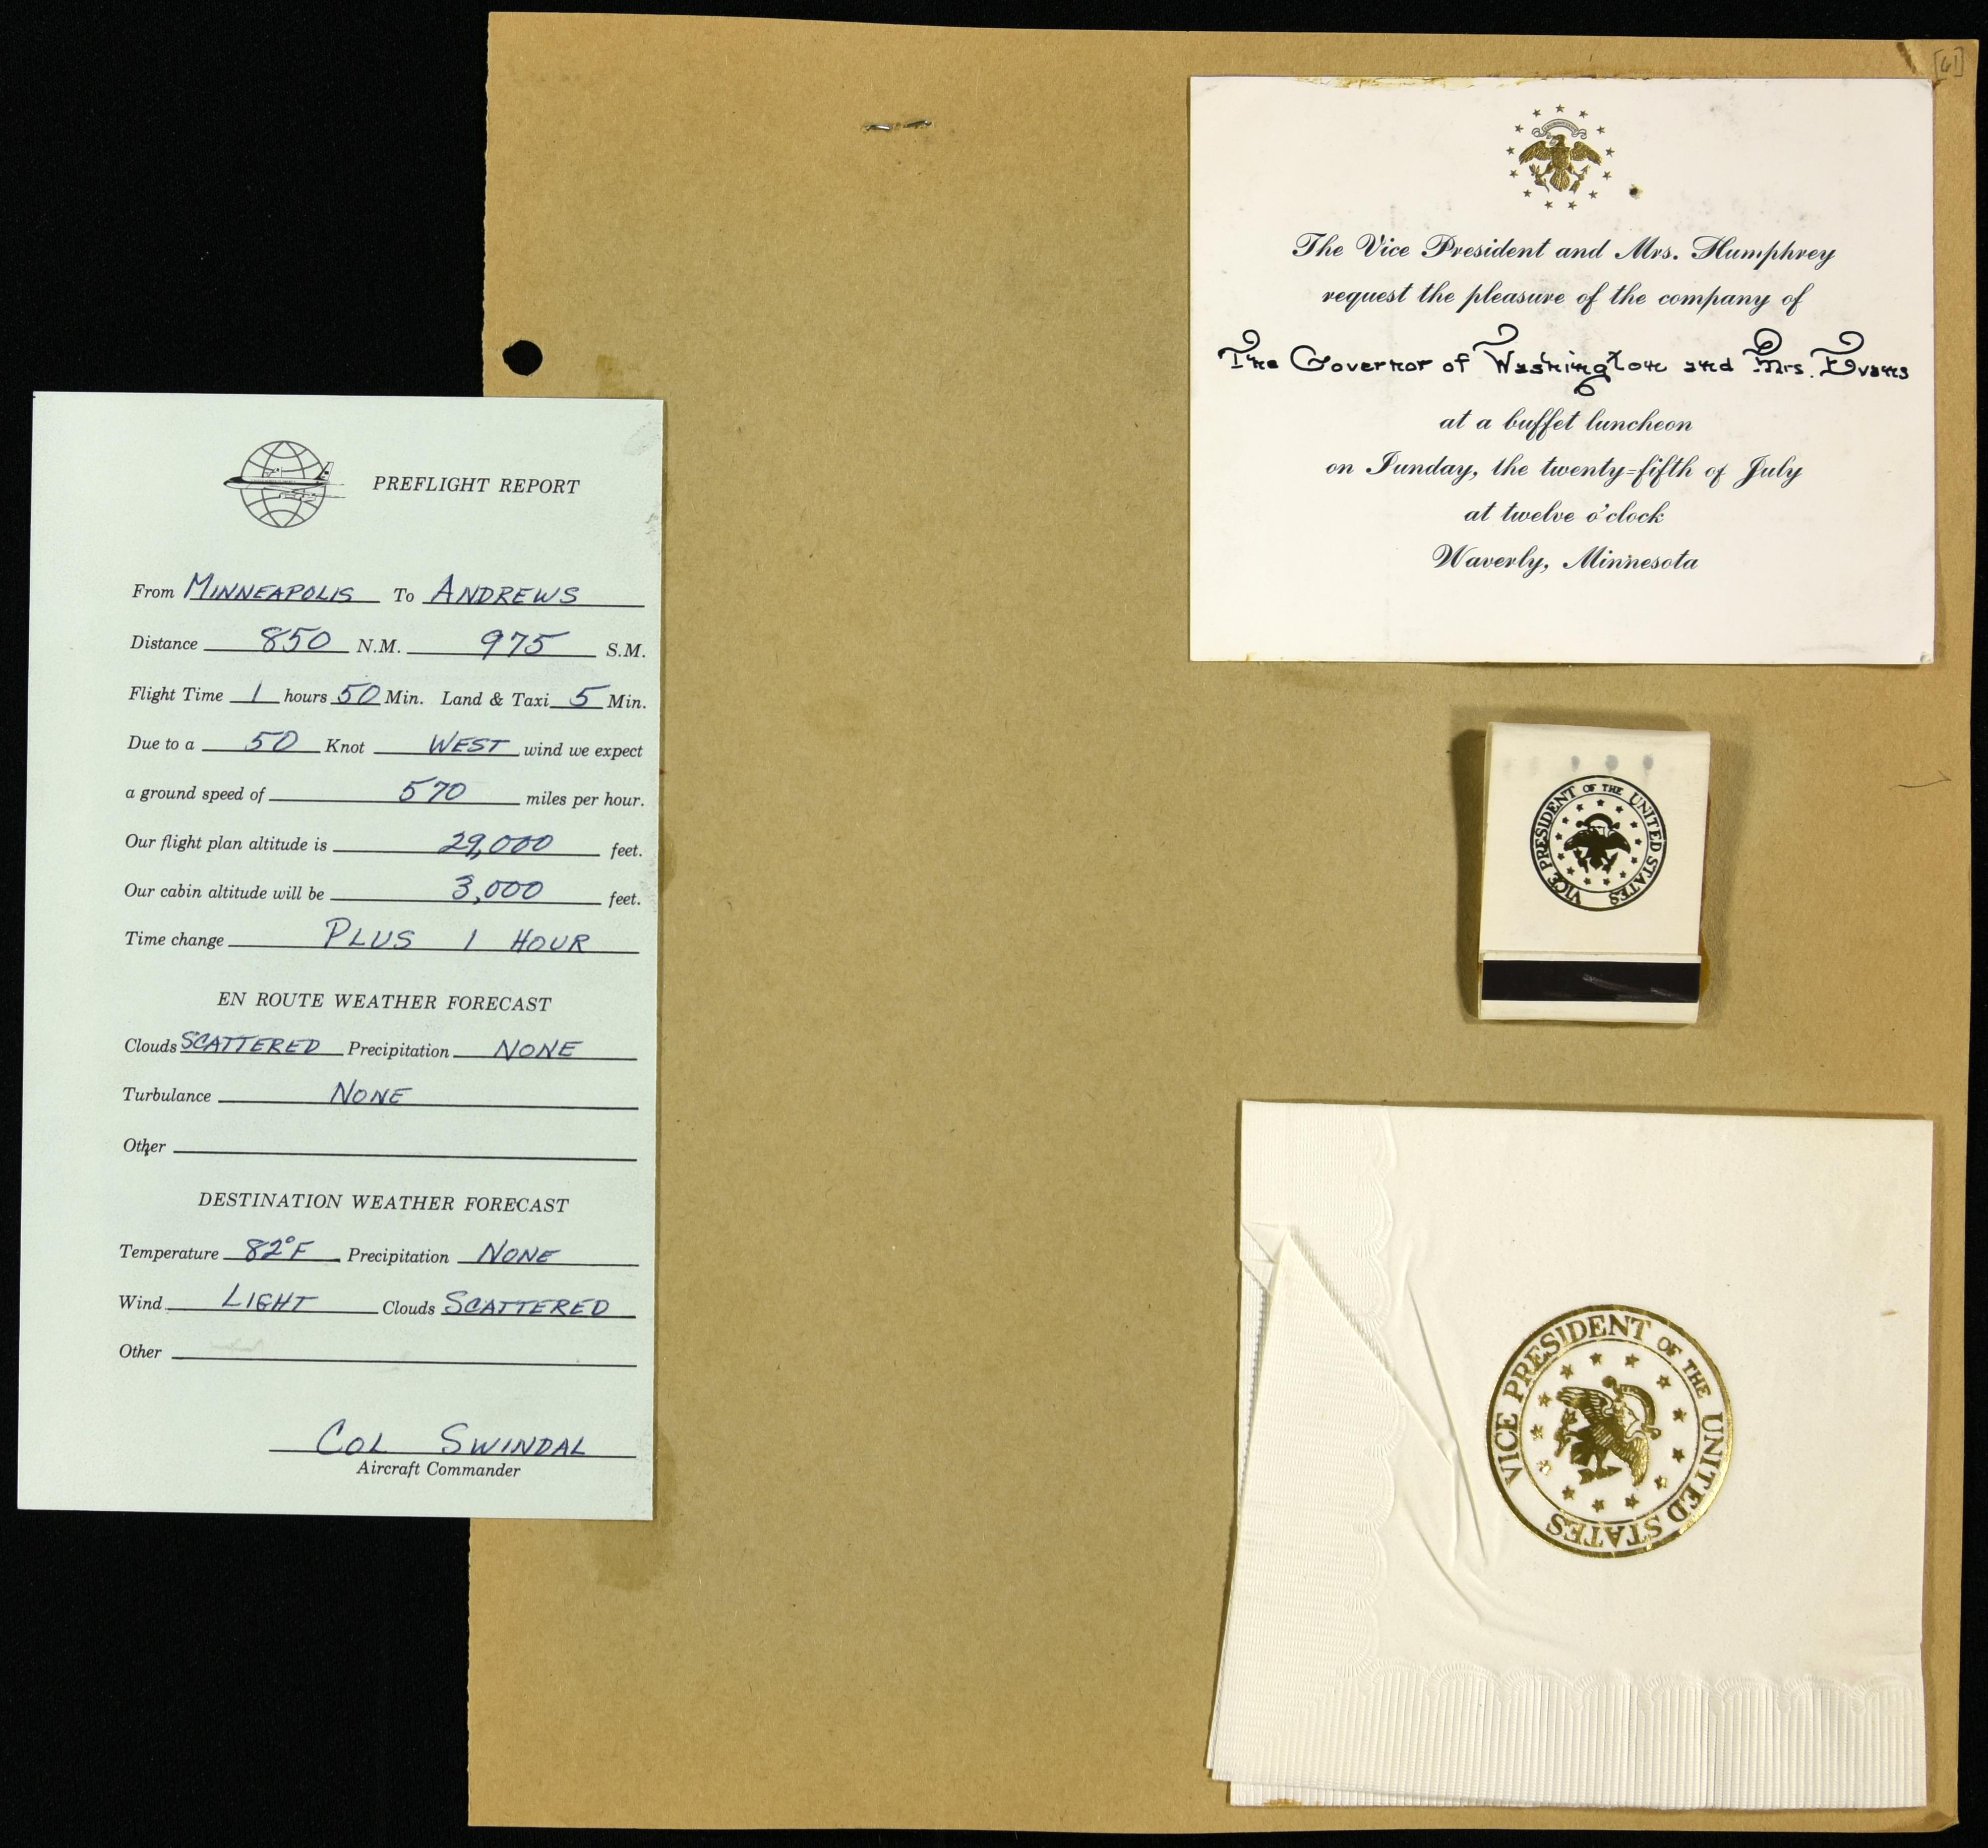 PREFLIGHT REPORT
From MINNEAPOLIS To ANDREWS
Distance 850 N.M. 975 S.M.
Flight Time 1 hours 50 Min. Land & Taxi 5 Min.
Due to a 50 Knot WEST wind we expect
a ground speed of 570 miles per hour.
Our flight plan altitude is 29,000 feet.
Our cabin altitude will be 3,000 feet.
Time change PLUS 1 HOUR
EN ROUTE WEATHER FORECAST
Clouds SCATTERED Precipitation NONE
Turbulance NONE
Other
DESTINATION WEATHER FORECAST
Temperature 82°F Precipitation NONE
Wind LIGHT Clouds SCATTERED
Other
COL SWINDAL
Aircraft Commander
[61]
The Vice President and Mrs. Humphrey
request the pleasure of the company of
The Governor of Washington and Mrs. Evans
at a buffet luncheon
on Sunday, the twenty=fifth of July
at twelve o'clock
Waverly, Minnesota
VICE PRESIDENT OF THE UNITED STATES
VICE PRESIDENT OF THE UNITED STATES